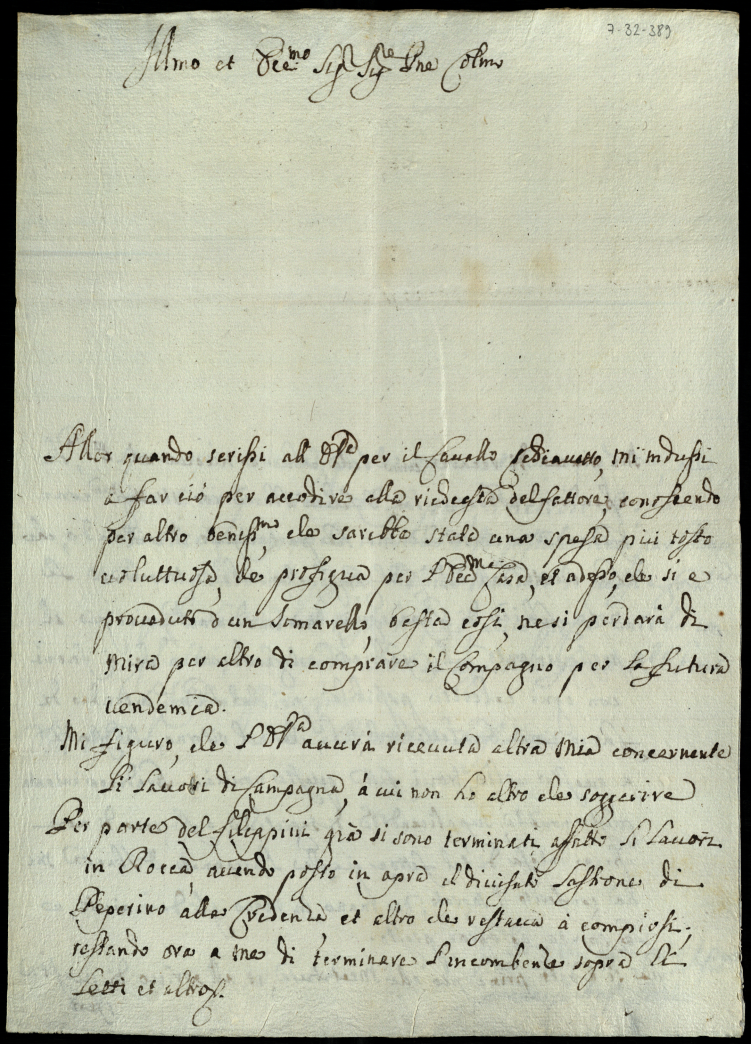 7-32-389
Illmo et Ecc.mo Sig.r Sig.re Pne Colmo
Allor quando scrissi all' per il Cavallo mi indussi
a far ciò per accudire alla richiesta del fattore, conoscendo
per altro beniss.mo che sarebbe stata una spesa più tosto
voluttuosa, che proficua per l'Ecc.ma Casa, et adesso, che si e
proveduto d'un Somarello, basta così, ne si perdarà di
mira per altro di comprare il Compagno per la futura
vendemia.
Mi figuro, che avurà ricevuta altra mia concernente
li Lavori di Campagna, à cui non ho altro che soggerire
Per parte del Filippini già si sono terminati affatto li Lavori
in Rocca, avendo posto in opra il divisato Lastrone di
Peperino alla Credenza, et altro che restava à compirsi;
restando ora a me di terminare l'incombenze sopra li
Letti et altro.